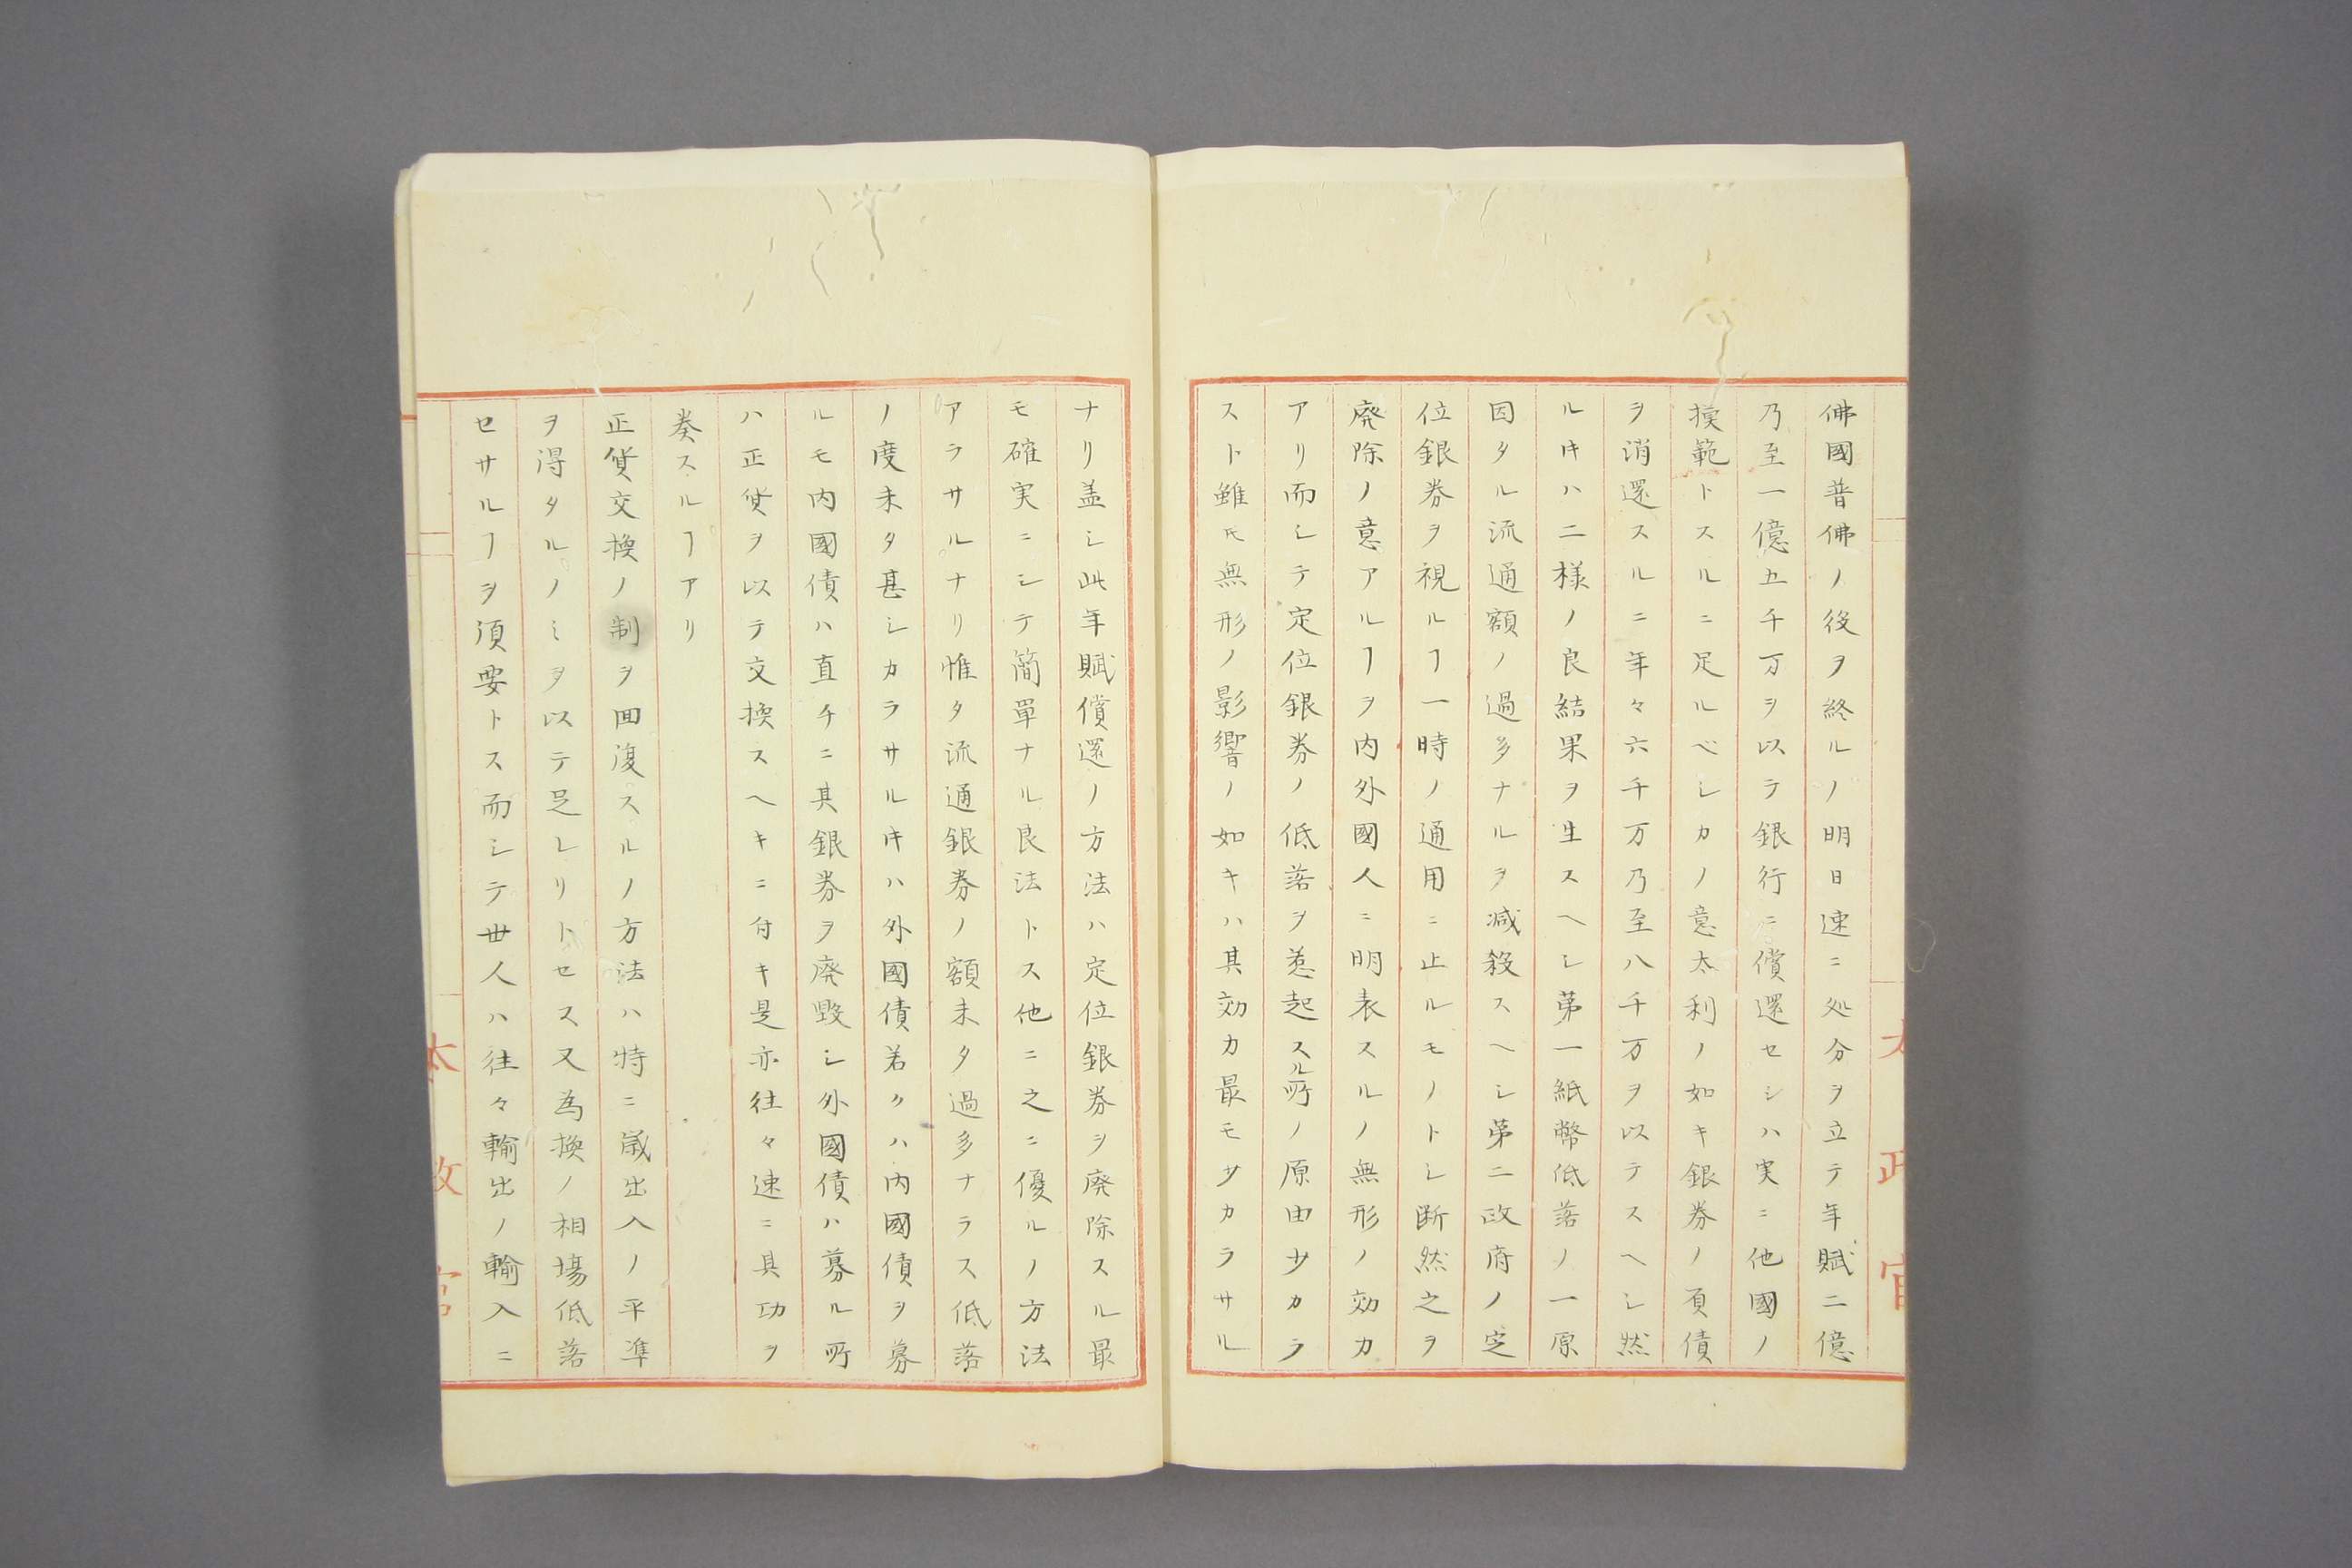 佛國普佛ノ後ヲ終ルノ明日速ニ処分ヲ立テ年賦二億
乃至一億五千万ヲ以テ銀行ニ償還セシハ実ニ他國ノ
摸範トスルニ足ルベシカノ意太利ノ如キ銀券ノ負債
ヲ消還スルニ年々六千万乃至八千万ヲ以テスヘシ然
ルキハ二様ノ良結果ヲ生スヘシ第一紙幣低落ノ一原
因タル流通額ノ過多ナルヲ减殺スヘシ第二政府ノ定
位銀券ヲ視ルヿ一時ノ通用ニ止ルモノトシ断然之ヲ
廃除ノ意アルヿヲ内外國人ニ明表スルノ無形ノ効力
アリ而シテ定位銀券ノ低落ヲ惹起スル所ノ原由少カラ
スト雖𪜈無形ノ影響ノ如キハ其効力最モ少カラサル
ナリ盖シ此年賦償還ノ方法ハ定位銀券ヲ廃除スル最
モ確実ニシテ簡單ナル良法トス他ニ之ニ優ルノ方法
アラサルナリ惟タ流通銀券ノ額未タ過多ナラス低落
ノ度未タ甚シカラサルキハ外國債若クハ内國債ヲ募
ルモ内國債ハ直チニ其銀券ヲ廃毀シ外國債ハ募ル所
ハ正貨ヲ以テ交換スヘキニ付キ是亦往々速ニ其功ヲ
奏スルヿアリ
正貨交換ノ制ヲ囬復スルノ方法ハ特ニ歳出入ノ平準
ヲ得タルノミヲ以テ足レリトセス又為換ノ相場低落
セサルヿヲ須要トス而シテ丗人ハ往々輸出ノ輸入ニ
太政官